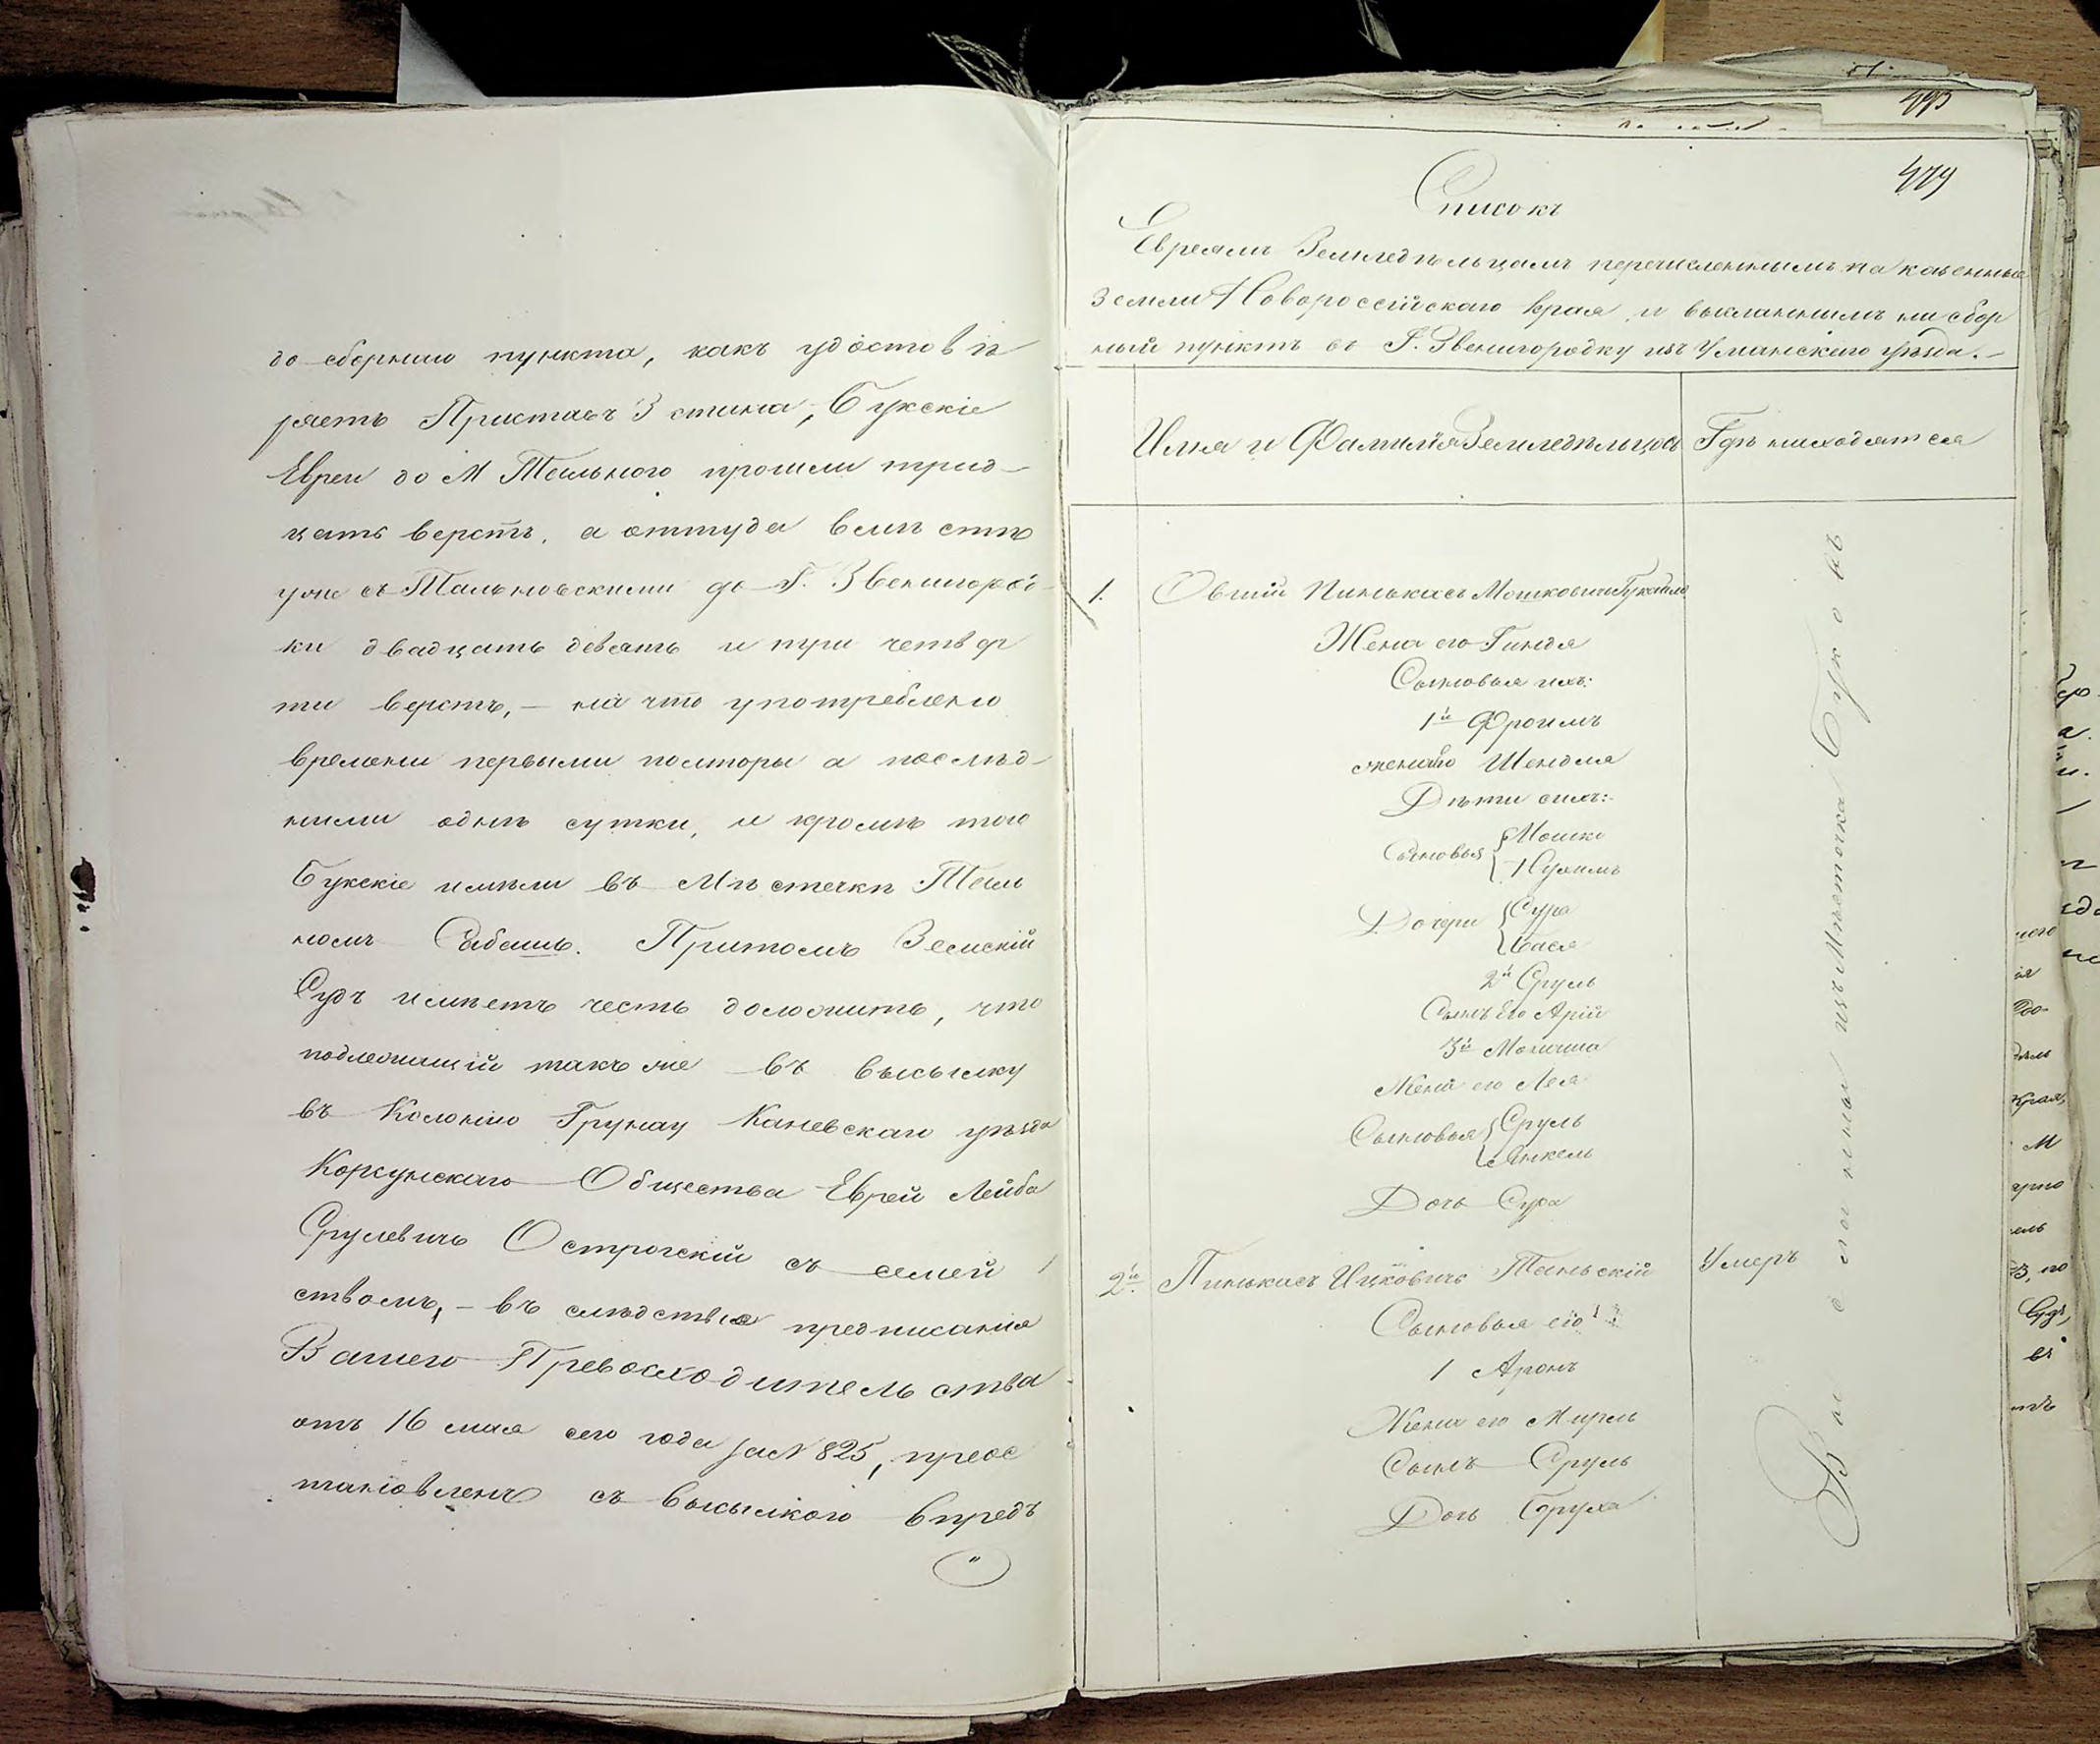 до сборнаго пункта, какъ удостовѣ
ряетъ Приставъ 3 стана, Букскіе
Евреи до М Тального прошли трид-
цать верстъ, а оттуда вмѣстѣ
уже съ Тальновскими до Г. Звенигород-
ки двадцать девять и три четвер
ти верстъ, - на что употреблено
времени первыми полторы а послѣд-
ними однѣ сутки, и кромѣ того
Букскіе имѣли въ Мѣстечкѣ Таль
номъ Сабашъ. Притомъ Земскій
Судъ имѣетъ честь доложить, что
подлежащій также въ высылку
въ Колонію Грунау Каневскаго уѣзда
Корсунскаго Общества Еврей Лейба
Срулевичъ Острогскій съ семей
ствомъ, - въ слѣдствіе предписанія
Вашего Превосходительства
отъ 16 мая сего года за N 825, преос
тановленъ съ высылкою впредь
493
479
Списокъ
Евреямъ Земледѣльцамъ перечисленнымъ на казенные
земли Новороссійскаго Края, и высланнымъ на сбор
ный пунктъ въ Г. Звенигородку изъ Уманскаго уѣзда. -
Имя и Фамилія Земледѣльцовъ
Гдѣ находятся
1. Овшій Пинькасъ Мошковичъ
Жена его Гиндя
Сыновья ихъ:
1й Фроимъ
жена его Шендля
Дѣти сихъ:
Сыновья { Мошко
Нухимъ
Дочери { Сура
Бася
2й Сруль
Сынъ Его Арій
3й
Жена его Лея
Сыновья { Сруль
Янкель
Дочь Сура
2й. Пинькасъ Ицковичъ Тальскій
Умеръ
Сыновья его
1 Аронъ
Жена его Мирля
Сынъ Сруль
Дочь Бруха
Высланны изъ Мѣстечка Буковъ